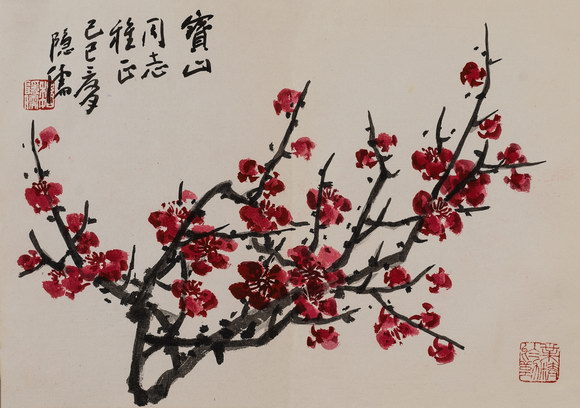 寶山
同志
雅正
己巳夏
隐儒